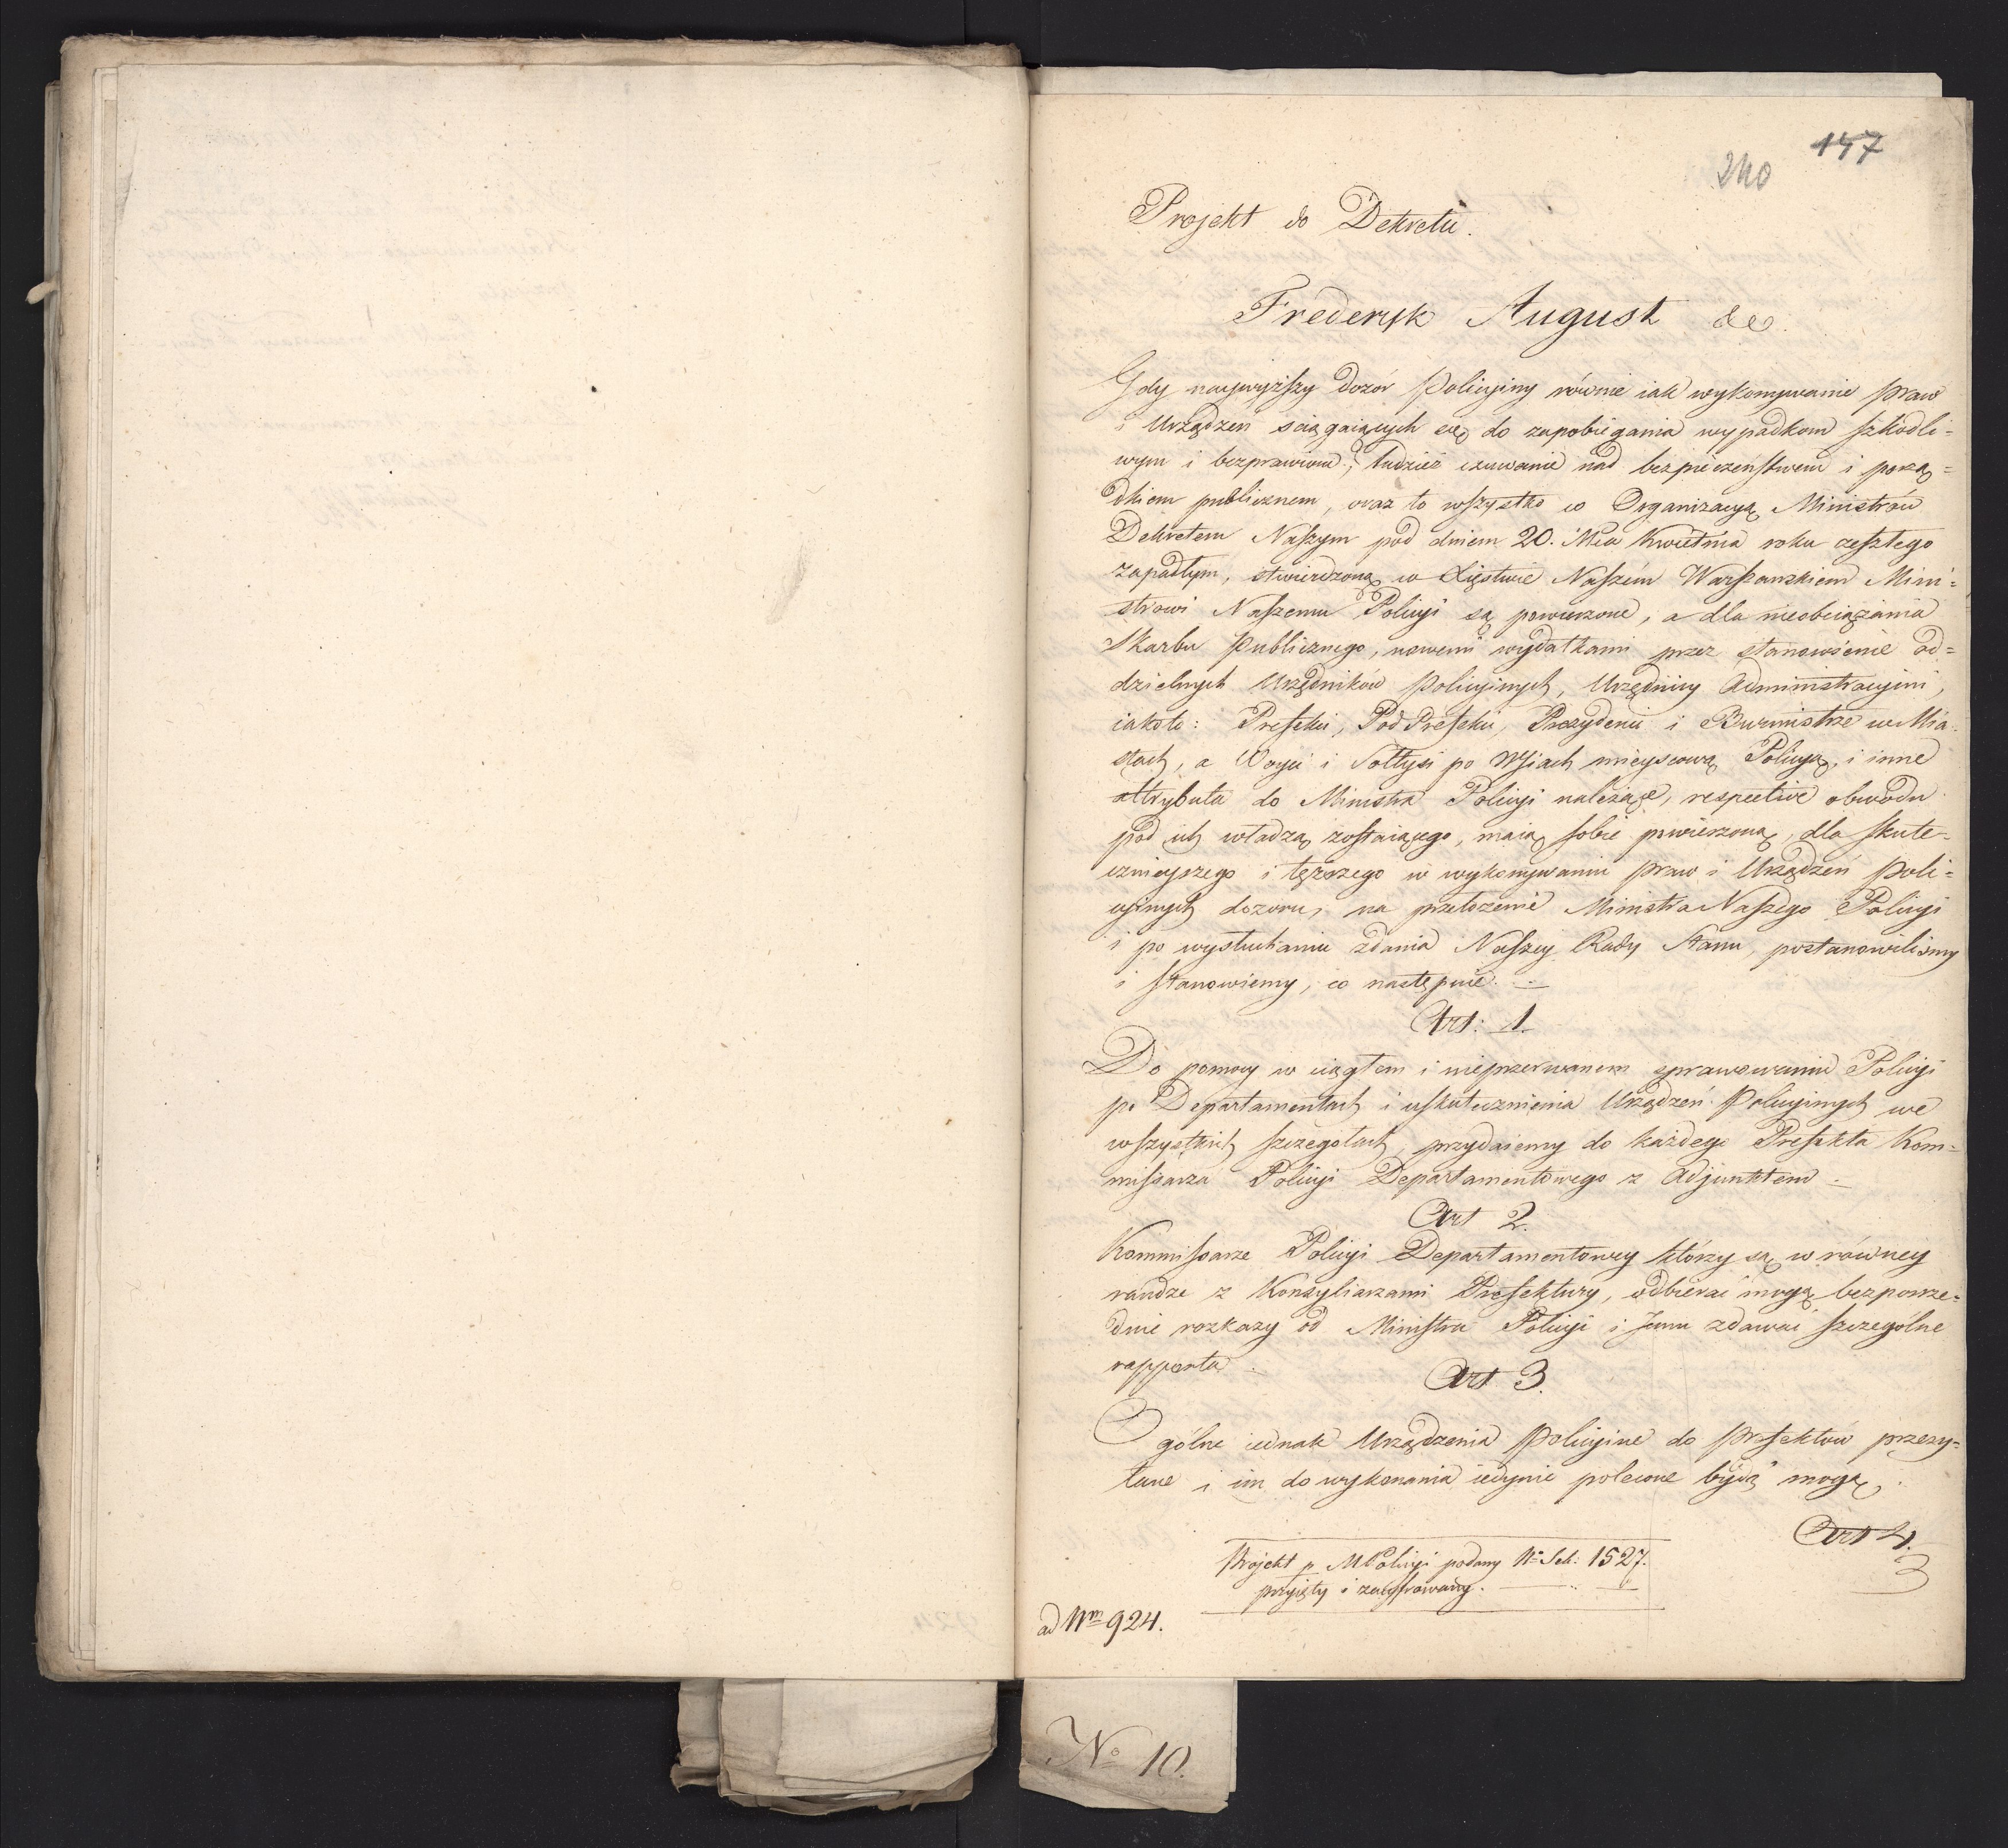 147
240
Projekt do Dekretu.
Frederyk August &c.
Gdy naywyższy dozór Policyiny równie iak wykonywanie praw
i Urządzeń sciągaiących się do zapobiegania wypadkom szkodli-
wym i bezprawiom, tudzież czuwanie nad bezpieczeństwem i porzą-
dkiem publicznem, oraz to wszystko co Organizacyą Ministrów
Dekretem Naszym pod dniem 20. Mca Kwietnia roku zeszłego
zapadłym, stwierdzoną w Xięstwie Naszém Warszawskiem Mini-
strowi Naszemu Policyi są powierzone, a dla nieobciążania
Skarbu Publicznego, nowemi wydatkami przez stanowienie od-
dzielnych Urzędników Policyinych, Urzędnicy Administracyini,
iakoto: Prefekci, PodPrefekci, Prezydenci i Burmistrze w Mia-
stach, a Woyci i Sołtysi po Wsiach mieyscową Policyą, i inne
attrybuta do Ministra Policyi należące, respective obwodu
pod ich władzą zostaiącego, maią sobie powierzoną, dla skute-
cznieyszego i tęższego w wykonywaniu praw i Urządzeń Poli-
cyinych dozoru, na przełożenie Ministra Naszego Policyi
i po wysłuchaniu zdania Naszey Rady Stanu, postanowilismy
i stanowiemy, co następuie. —
Art: 1.
Do pomocy w ciągłem i nieprzerwanem sprawowaniu Policyi
po Departamentach i uskutecznienia Urządzeń Policyinych we
wszystkich szczegołach, przydaiemy do każdego Prefekta Kom-
missarza Policyi Departamentowego z Adjunktem. —
Art 2.
Kommissarze Policyi Departamentowey którzy są w równey
randze z Konsyliarzami Prefektury, odbierać mogą bezposrze-
dnie rozkazy od Ministra Policyi i Jemu zdawać szczególne
rapporta.
Art 3.
Ogólne iednak Urządzenia Policyine do Prefektów przesy-
łane i im do wykonania iedynie polecone bydź mogą.
Art 4.
3
Projekt p. MPolicyi podany No Seh: 1527.
przyięty i
ad Nm 924.
No 10.